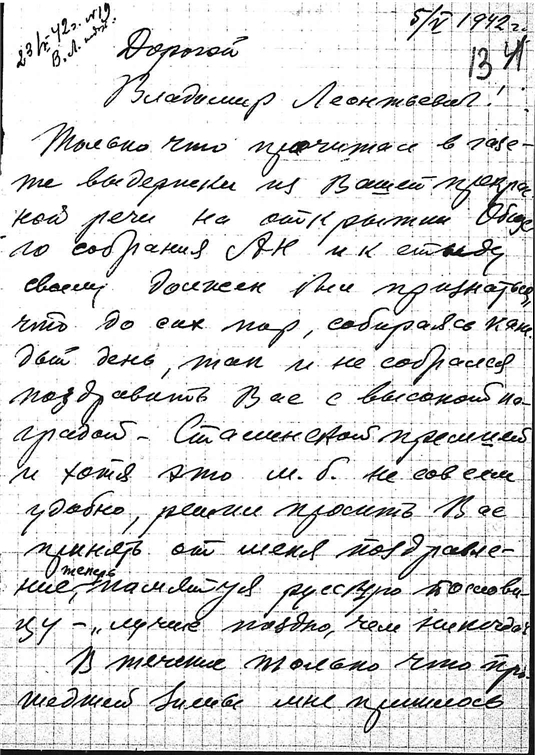 5/V 1942 г.
23/V-42 г. №19
В. Л.
13
Дорогой
Владимир Леонтьевич!
Только что прочитал в газе-
те выдержки из Вашей прекра
ной речи на открытии Обще
го собрания АН и к стыду
своему должен был признаться,
что до сих пор, собираясь каж
дый день, так и не собрался
поздравить Вас с высокой на-
градой - Сталинской премией
и хотя это м. б. не совсем
удобно, решил просить Вас
принять от меня поздравле-
ние теперь, памятуя русскую послови-
цу - "лучше поздно, чем никогда"
В течение только что про-
шедшей зимы мне пришлось